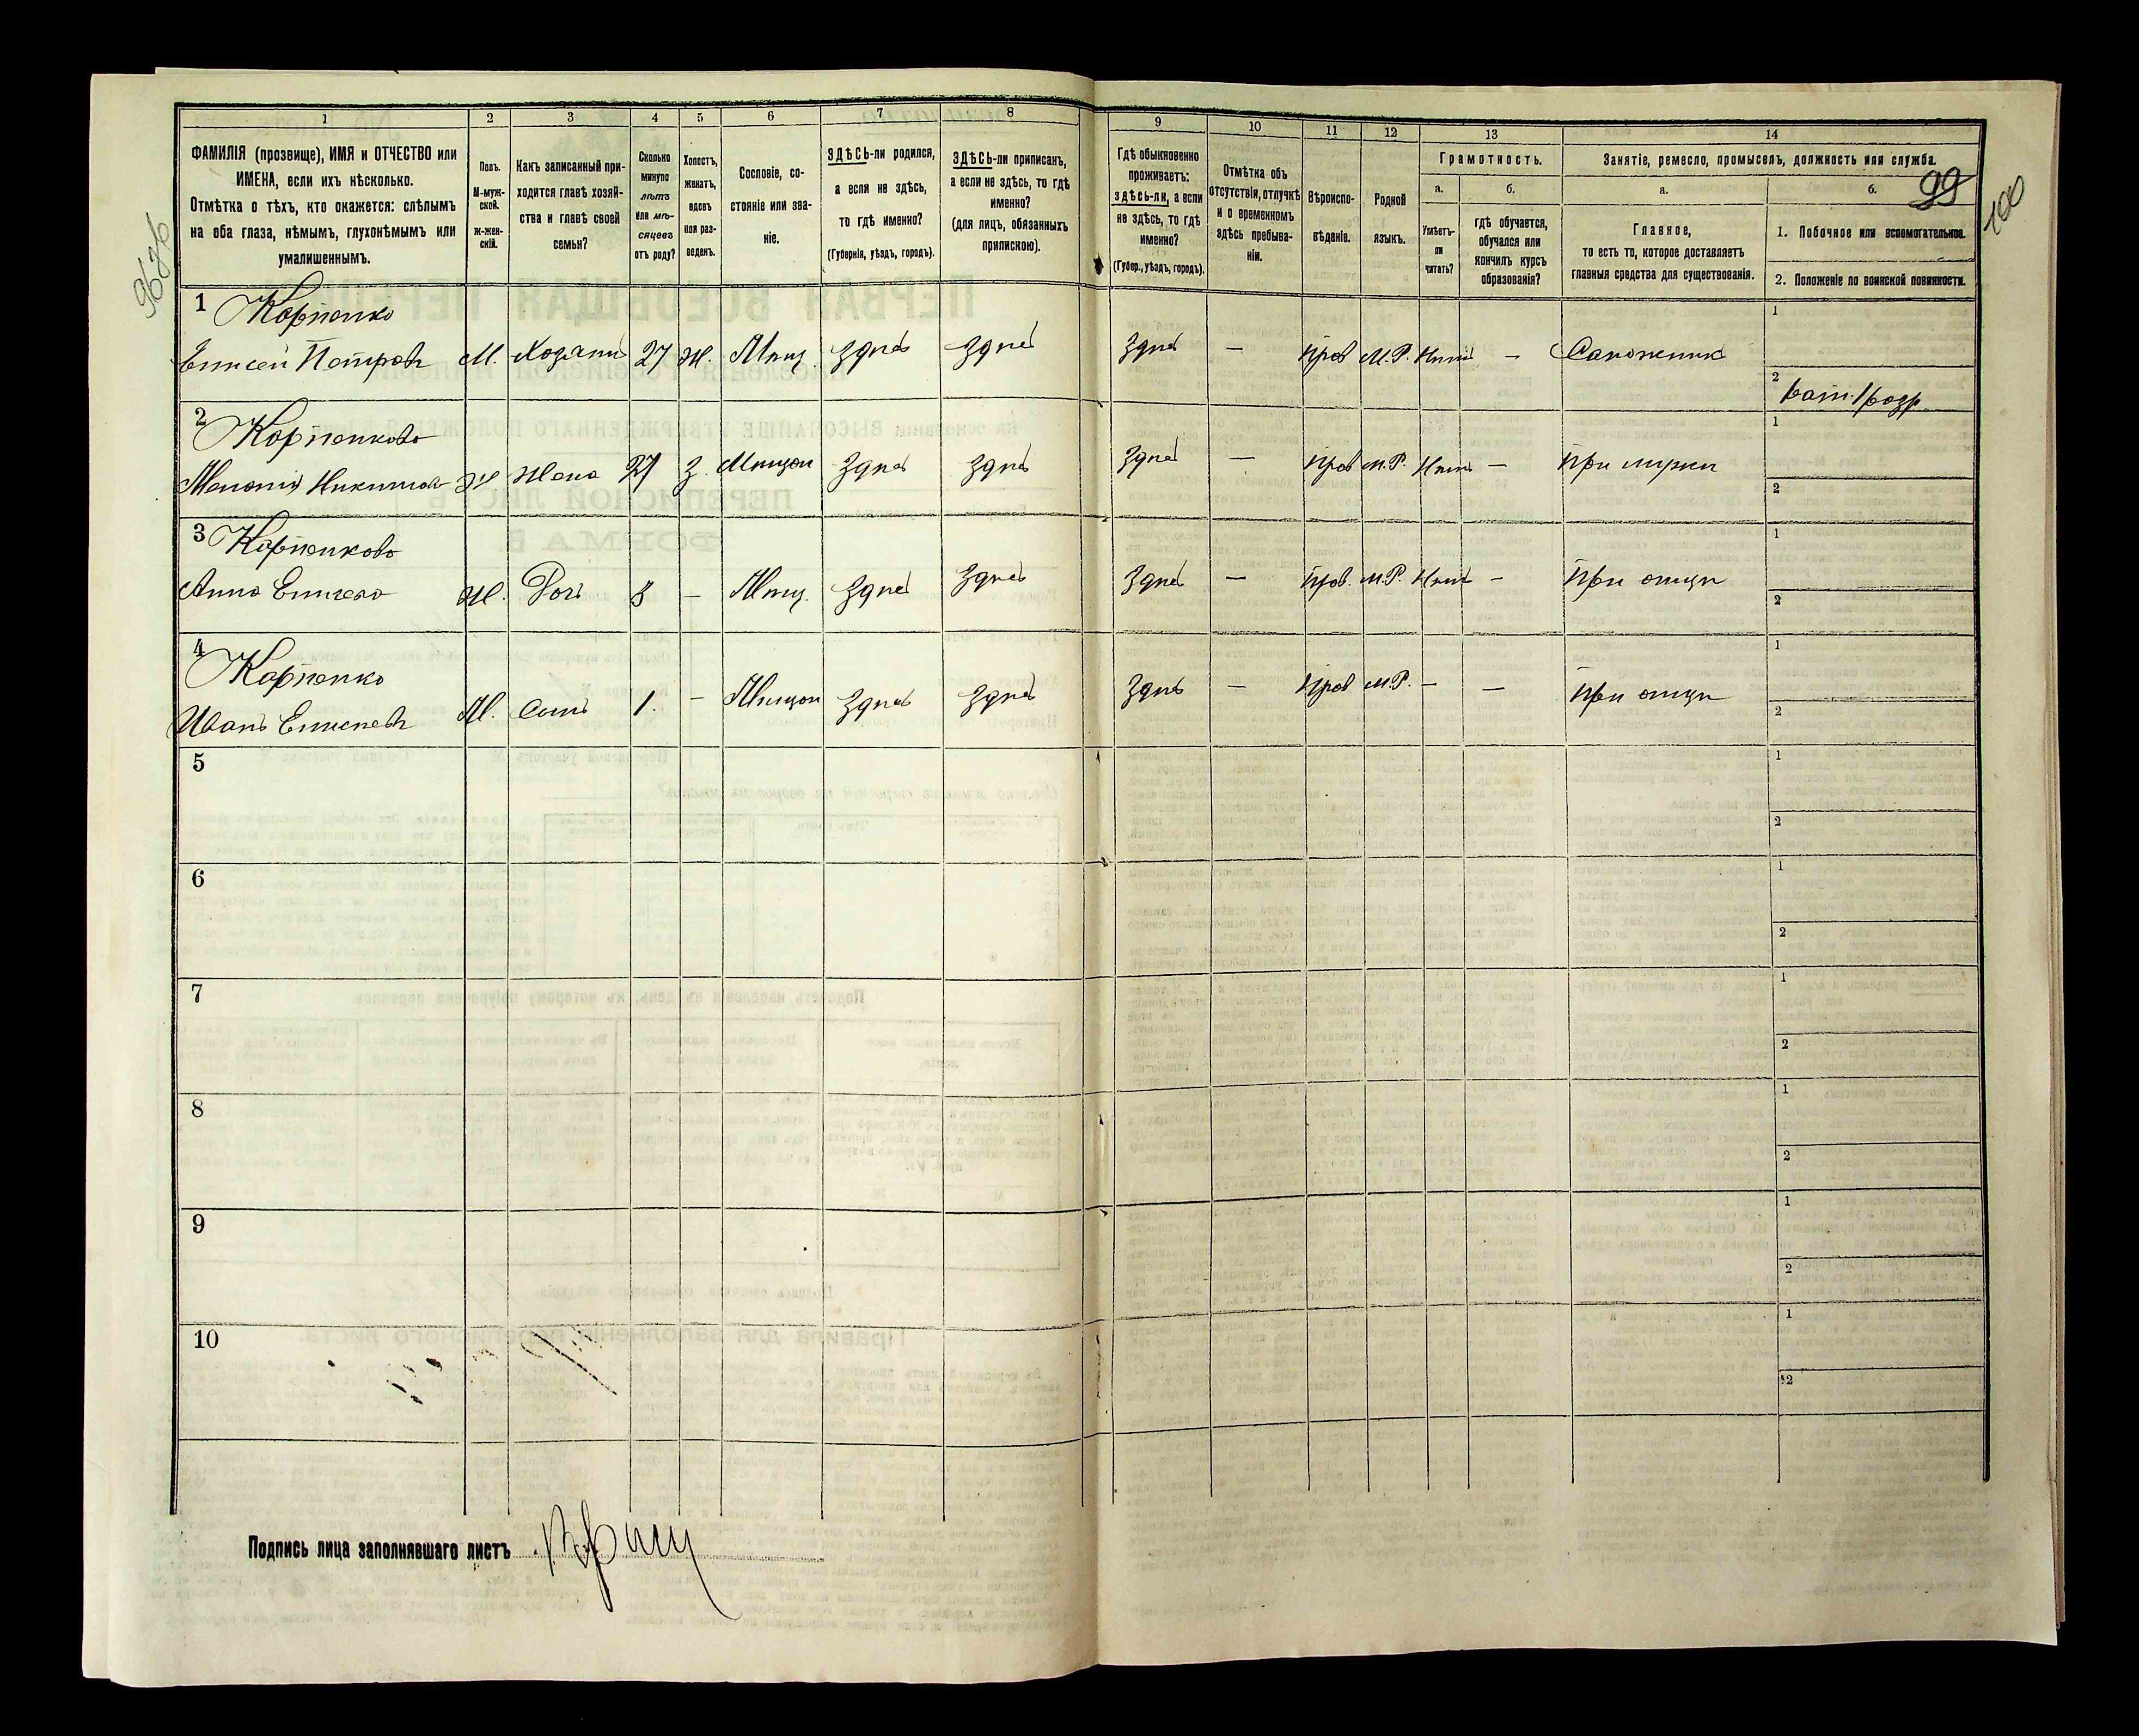 1 2 3 4 5 6 7 8 9 10 11 12 13 14
ФАМИЛІЯ (прозвище), ИМЯ и ОТЧЕСТВО или
ИМЕНА, если ихъ нѣсколько.
Отмѣтка о тѣхъ, кто окажется: слѣпымъ
на оба глаза, нѣмымъ, глухонѣмымъ или
умалишеннымъ.
Полъ.
М-муж-
ской.
ж-жен-
скій.
Какъ записанный при-
ходится главѣ хозяй-
ства и главѣ своей
семьи?
Сколько
минуло
лѣтъ
или мѣ-
сяцевъ
отъ роду?
Холостъ,
женатъ,
вдовъ
или раз-
веденъ.
Сословіе, со-
стояніе или зва-
ніе.
ЗДѢСЬ-ли родился,
а если не здѣсь,
то гдѣ именно?
(Губернія, уѣздъ, городъ).
ЗДѢСЬ-ли приписанъ,
а если не здѣсь, то гдѣ
именно?
(для лицъ, обязанныхъ
припискою).
Гдѣ обыкновенно
проживаетъ:
здѣсь-ли, а если
не здѣсь, то гдѣ
именно?
(Губер., уѣздъ, городъ).
Отмѣтка объ
отсутствіи, отлучкѣ
и о временномъ
здѣсь пребыва-
ніи.
Вѣроиспо-
вѣданіе.
Родной
языкъ.
Грамотность.
а.
Умѣетъ-
ли
читать?
б.
гдѣ обучается,
обучался или
кончилъ курсъ
образованія?
Занятіе, ремесло, промыселъ, должность или служба.
а.
Главное,
то есть то, которое доставляетъ
главныя средства для существованія.
б.
99
100
1. Побочное или вспомогательное.
2. Положеніе по воинской повинности.
1 Карпенко
Елисей Петровъ М. Хозяинъ 27 Ж. Мѣщ. Здѣсь Здѣсь Здѣсь — Прав М.Р. Нѣтъ — Сапожникъ
1
2
2 Карпенкова
Никитина Ж Жена 27 З. Мѣщан Здѣсь Здѣсь Здѣсь — Прав М.Р. Нѣтъ — При мужѣ
1
2
3 Карпенкова
Анна Елисеева Ж. Дочь 8 — Мѣщ. Здѣсь Здѣсь Здѣсь — Прав. М.Р. Нѣтъ — При отцѣ
1
2
4 Карпенко
Иванъ Елисеевъ М. Сынъ 1. — Мѣщан Здѣсь Здѣсь Здѣсь — Прав М.Р. — — При отцѣ
1
2
5
1
2
6
1
2
7
1
2
8
1
2
9
1
2
10
1
2
Подпись лица заполнявшаго листъ